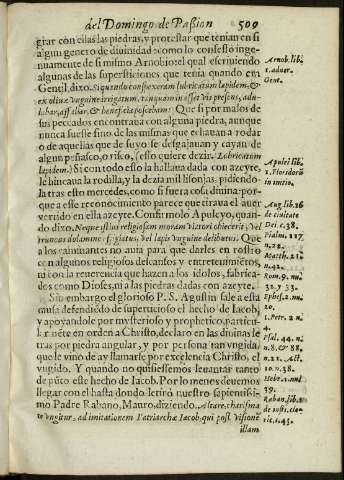 del Domingo de Passion 509
grar con ellas las piedras, y protestar que tenian en si
algun genero de diuinidad: como lo confessò inge-
nuamente de si mismo Arnobio: el qual escriuiendo
algunas de las supersticiones que tenia quando era
Gentil, dixo. Siquando conspexeram lubricatum lapidem, &
ex oliuæ vnguine irrigatum, tanquam inesset vis præsens, adu-
labar, affabar, & beneficia poscebam. Que si por malos de
sus peccados encontraua con alguna piedra, aunque
nunca fuesse sino de las mismas que echauan a rodar
o de aquellas que de suyo se desgajauan y cayan de
algun peñasco, o risco, (esso quiere dezir. Lubricatum
lapidem.) Si con todo esso la hallaua dada con azeyte,
le hincaua la rodilla, y la dezia mil lisonjas, pidiendo-
la tras esto mercedes, como si fuera cosa diuina: por-
que a esse reconocimiento parece que tiraua el auer
vertido en ella azeyte. Confirmolo Apuleyo, quan-
do dixo. Neque iustius religiosam moram viatori obiecerit, vel
truncus dolamine effigiatus, vel lapis vnguine delibutus. Que
a los caminantes no auia para que darles en rostro
con algunos religiosos descansos y entretenimiẽtos,
ni con la reuerencia que hazen a los idolos, fabrica-
dos como Dioses, ni a las piedras dadas con azeyte.
Sin embargo el glorioso P. S. Agustin sale a esta
causa defendiẽdo de supersticioso el hecho de Iacob,
y apoyandole por mysterioso y prophetico, particu-
larmẽte en orden a Christo, declaro en las diuinas le-
tras por piedra angular, y por persona tan vngida
que le vino de ay llamarle por excelencia Christo, el
vngido. Y quando no quisiessemos leuantar tanto
de pũto este hecho de Iacob. Por lo menos deuemos
llegar con el hasta donde letirò nuestro sapientissi-
mo Padre Rabano, Mauro, diziendo. Altare, charisma
te vngitur, ad imitationem Patriarchæ Iacob, qui post visionẽ
illam
Arnob. lib.
1. aduer.
Gent.
Apulei lib.
1. Floridorũ
in initio.
Aug. lib. 16
de ciuitate
Dei. c. 38.
Psalm. 117
n. 22.
Matth. 21.
n. 42.
Rom. 9. nu.
32. y 33.
Ephes. 2. nu.
20.
1. Petr. 2. n.
4.
Psal. 44. n.
n. 8. & 88.
n. 21. Act.
10. n. 38.
Hebr. 1. nu.
9.
Raban. lib. 2
de insti. cle-
ric. c. 45.